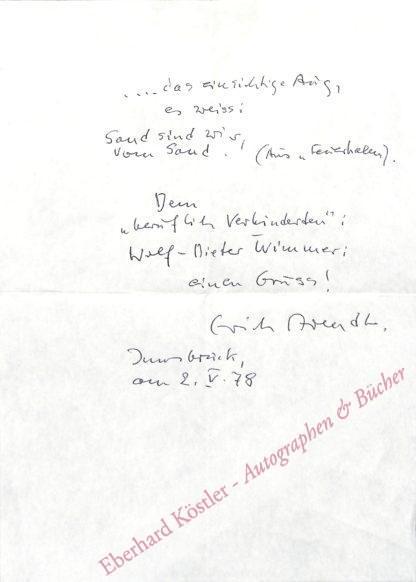 ....das einsichtige Aug,
es weiss:
Sand sind wir,
vom Sand. (Aus „Feuerhalm).
Dem
„beruflich Verhinderten":
Wolf-Dieter Wimmer:
einen Gruss!
Erich Arendt.
Innsbruck,
am 2. V. 78
Eberhard Köstler - Autographen & Bücher